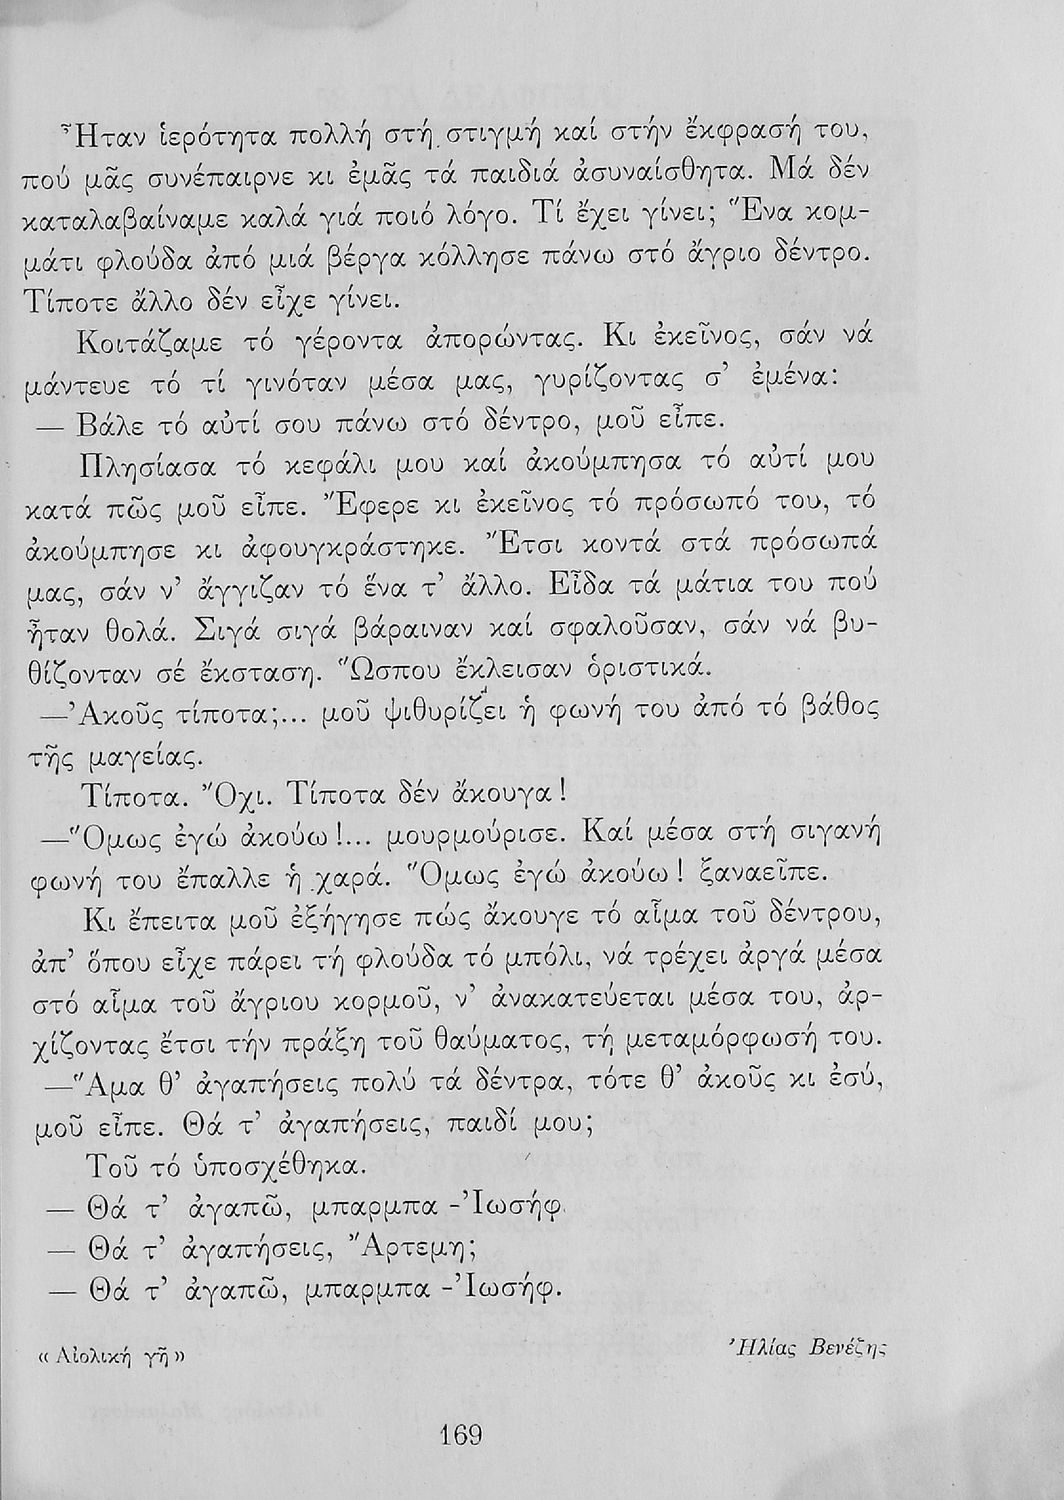 Ἦταν ἱερότητα πολλή στή στιγμή καί στήν ἔκφρασή του,
πού μᾶς συνέπαιρνε κι ἐμᾶς τά παιδιά ἀσυναίσθητα. Μά δέν
καταλαβαίναμε καλά γιά ποιό λόγο. Τί ἔχει γίνει; Ἕνα κομ-
μάτι φλούδα ἀπό μιά βέργα κόλλησε πάνω στό ἄγριο δέντρο.
Τίποτε ἄλλο δέν εἶχε γίνει.
Κοιτάζαμε τό γέροντα ἀπορώντας. Κι ἐκεῖνος, σάν νά
μάντευε τό τί γινόταν μέσα μας, γυρίζοντας σ᾿ ἐμένα:
— Βάλε τό αὐτί σου πάνω στό δέντρο, μοῦ εἶπε.
Πλησίασα τό κεφάλι μου καί ἀκούμπησα τό αὐτί μου
κατά πῶς μοῦ εἶπε. Ἔφερε κι ἐκεῖνος τό πρόσωπό του, τό
ἀκούμπησε κι ἀφουγκράστηκε. Ἔτσι κοντά στά πρόσωπά
μας, σάν ν᾿ ἄγγιζαν τό ἕνα τ᾿ ἄλλο. Εἶδα τά μάτια του πού
ἦταν θολά. Σιγά σιγά βάραιναν καί σφαλοῦσαν, σάν νά βυ-
θίζονταν σέ ἔκσταση. Ὥσπου ἔκλεισαν ὁριστικά.
—Ἀκοῦς τίποτα;... μοῦ ψιθυρίζει ἡ φωνή του ἀπό τό βάθος
τῆς μαγείας.
Τίποτα. Ὄχι. Τίποτα δέν ἄκουγα!
—Ὅμως ἐγώ ἀκούω!... μουρμούρισε. Καί μέσα στή σιγανή
φωνή του ἔπαλλε ἡ χαρά. Ὅμως ἐγώ ἀκούω! ξαναεῖπε.
Κι ἔπειτα μοῦ ἐξήγησε πώς ἄκουγε τό αἷμα τοῦ δέντρου,
ἀπ᾿ ὅπου εἶχε πάρει τή φλούδα τό μπόλι, νά τρέχει ἀργά μέσα
στό αἷμα τοῦ ἄγριου κορμοῦ, ν᾿ ἀνακατεύεται μέσα του, ἀρ-
χίζοντας ἔτσι τήν πράξη τοῦ θαύματος, τή μεταμόρφωσή του.
—Ἅμα θ᾿ ἀγαπήσεις πολύ τά δέντρα, τότε θ᾿ ἀκοῦς κι ἐσύ,
μοῦ εἶπε. Θά τ᾿ ἀγαπήσεις, παιδί μου;
Τοῦ τό ὑποσχέθηκα.
— Θά τ᾿ ἀγαπῶ, μπαρμπα -Ἰωσήφ.
— Θά τ᾿ ἀγαπήσεις, Ἄρτεμη;
— Θά τ᾿ ἀγαπῶ, μπαρμπα -Ἰωσήφ.
« Αἰολική γῆ »
Ἠλίας Βενέζης
169